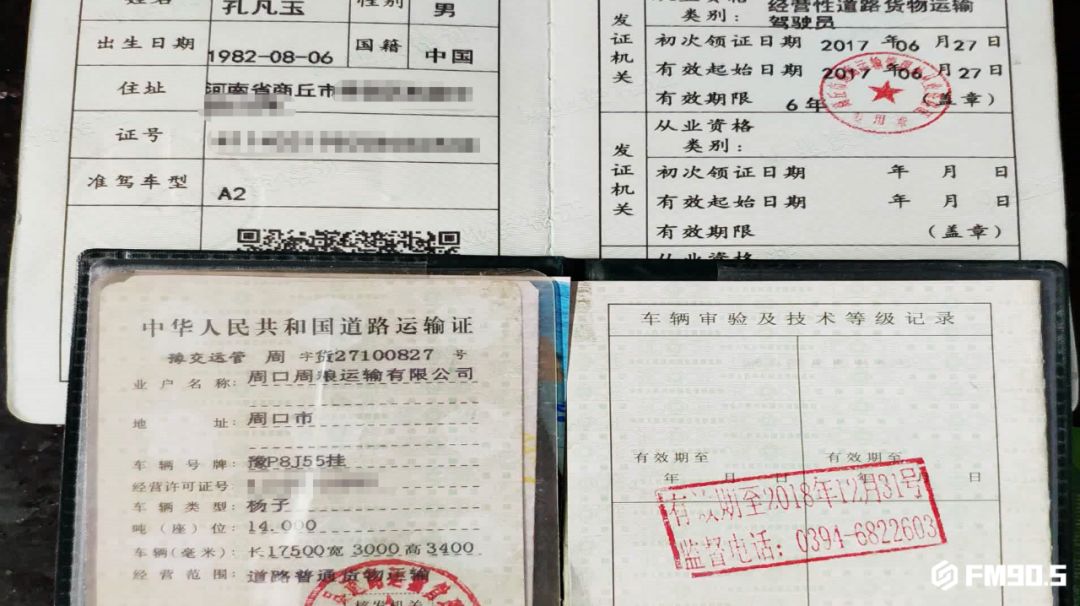 姓名 孔凡玉 性别 男
出生日期 1982-08-06 国籍 中国
住址 河南省商丘市
证号
准驾车型 A2
发证机关
类别:
经营性道路货物运输
驾驶员
初次领证日期 2017 年 06 月 27 日
有效起始日期 2017 年 06 月 27 日
有效期限 6年 (盖章)
发证机关
从业资格
类别:
初次领证日期 年 月 日
有效起始日期 年 月 日
有效期限 (盖章)
从业资格
中华人民共和国道路运输证
豫交运管 周 字货27100827 号
业户名称: 周口周粮运输有限公司
地 址: 周口市
车辆号牌: 豫P8J55挂
经营许可证号:
车辆类型: 杨子
吨(座)位: 14.000
车辆(毫米): 长17500宽 3000高3400
经营范围: 道路普通货物运输
核发机关
车辆审验及技术等级记录
有效期至 有效期至
年 日
有效期至2018年12月31号
监督电话: 0394-6822603
FM90.5